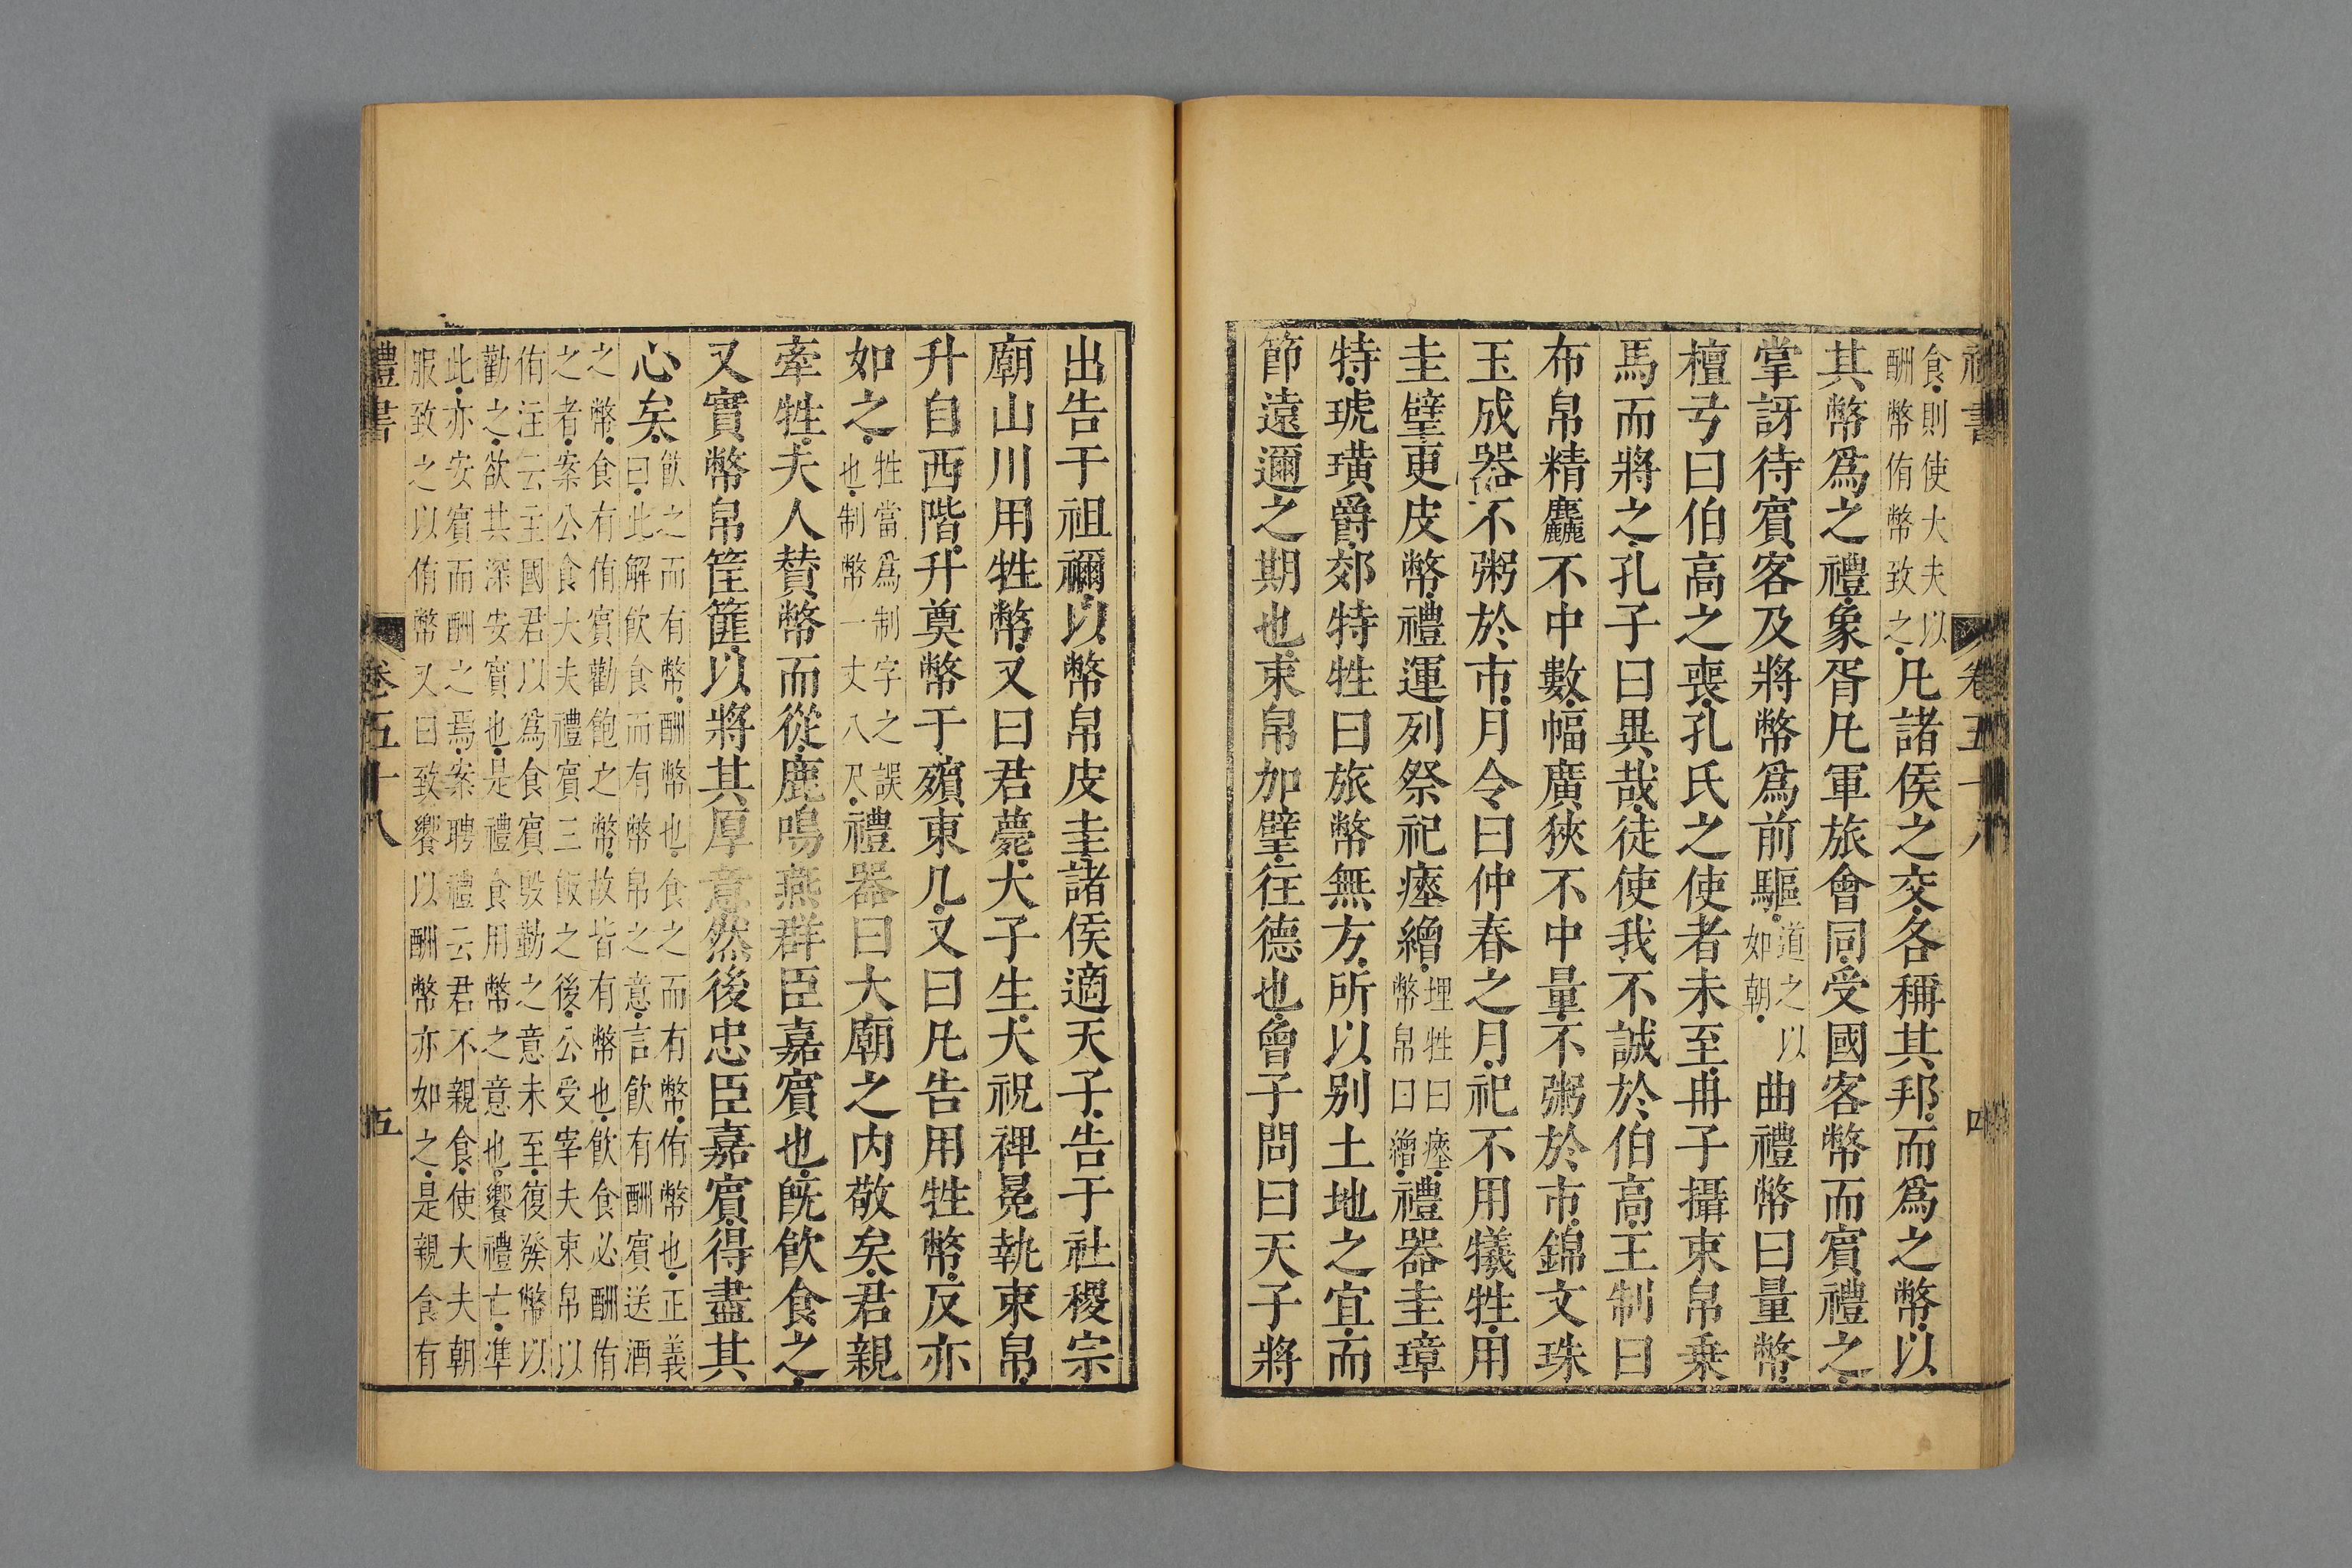 禮書 卷五十八 四
食則使大夫以
酬幣侑幣致之凡諸侯之交各稱其邦而爲之幣以
其幣爲之禮象胥凡軍旅會同受國客幣而賓禮之
掌訝待賓客及將幣爲前驅道之以如朝曲禮幣曰量幣
檀弓曰伯高之喪孔氏之使者未至冉子攝束帛乗
馬而將之孔子曰異哉徒使我不誠於伯高王制曰
布帛精麤不中數幅廣狹不中量不粥於市錦文珠
玉成器不粥於市月令曰仲春之月祀不用犧牲用
圭璧更皮幣禮運列祭祀瘞繒埋牲曰瘞幣帛曰繒禮器圭璋
特琥璜爵郊特牲曰旅幣無方所以别土地之宜而
節遠邇之期也束帛加璧往德也曾子問曰天子將
出告于祖禰以幣帛皮圭諸侯適天子告于社稷宗
廟山川用牲幣又曰君薨大子生大祝裨冕執束帛
升自西階升奠幣于殯東几又曰凡告用牲幣反亦
如之牲當爲制字之誤也制幣一丈八尺禮器曰大廟之内敬矣君親
牽牲夫人賛幣而從鹿鳴燕群臣嘉賓也旣飮食之
又實幣帛筐篚以將其厚意然後忠臣嘉賓得盡其
心矣飮之而有幣酬幣也食之而有幣侑幣也正義
曰此解飮食而有幣帛之意言飮有酬賓送酒
之幣食有侑賓勸飽之幣故皆有幣也飮食必酬侑
之者案公食大夫禮賓三飯之後公受宰夫束帛以
侑注云主國君以爲食賓殷勤之意未至復發幣以
勸之欲其深安賓也是禮食用幣之意也饗禮亡準
此亦安賓而酬之焉案聘禮云君不親食使大夫朝
服致之以侑幣又曰致饗以酬幣亦如之是親食有
禮書 卷五十八 五